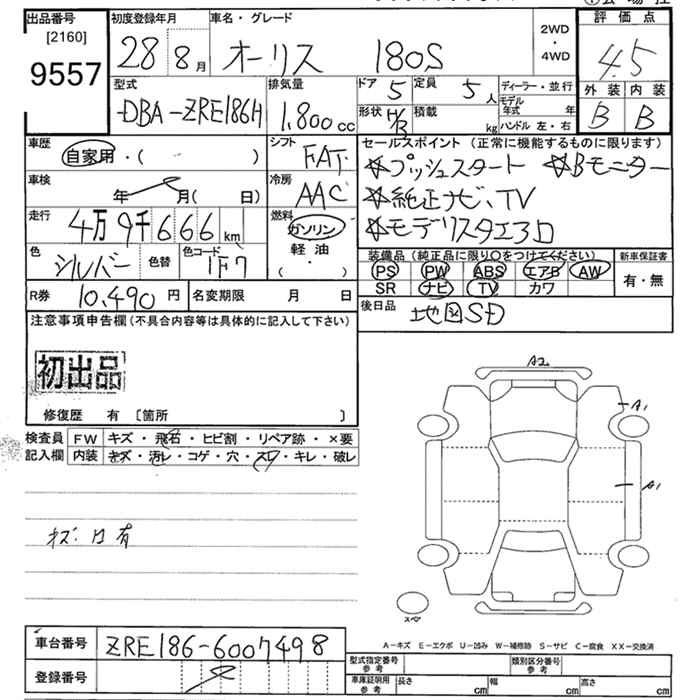 出品番号
[2160]
9557
初度登録年月
28 8月
車名・グレード
オーリス 180S
2WD・4WD
評価点
4.5
外装 内装
B B
型式
DBA-ZRE186H
排気量
1,800cc
ドア 5
定員 5人
形状 H/B
積載 kg
ディーラー・並行
モデル年式 年
ハンドル 左・右
車歴
自家用・( )
車検
年 月( 日)
走行
4万9千666km
色
シルバー
色替
色コード
1F7
シフト
FAT
冷房
AAC
燃料
ガソリン
軽油
・
( )
セールスポイント (正常に機能するものに限ります)
☆プッシュスタート ☆Bモニター
☆純正ナビ、TV
☆モデリスタエアロ
装備品 (純正品に限り○をつけてください)
PS PW ABS エアB AW
SR ナビ TV カワ
新車保証書
有・無
R券 10,490円
名変期限 月 日
後日品 地図SD
注意事項申告欄(不具合内容等は具体的に記入して下さい)
初出品
修復歴 有 〔箇所 〕
検査員記入欄
FW キズ・飛石・ヒビ割・リペア跡・×要
内装 キズ・汚レ・コゲ・穴・スレ・キレ・破レ
A2
A1
A1
スペア
A-キズ E-エクボ U-凹み W-補修跡 S-サビ C-腐食 XX-交換済
車台番号 ZRE186-6007498
登録番号
型式指定番号 参考
類別区分番号 参考
車庫証明用 参考
長さ cm
幅 cm
高さ cm